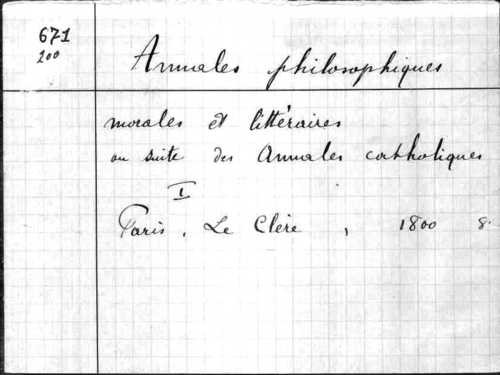 671
200
Annales philosophiques
morales et littéraires
ou suite des Annales catholiques
I
Paris, Le Clère, 1800 8.